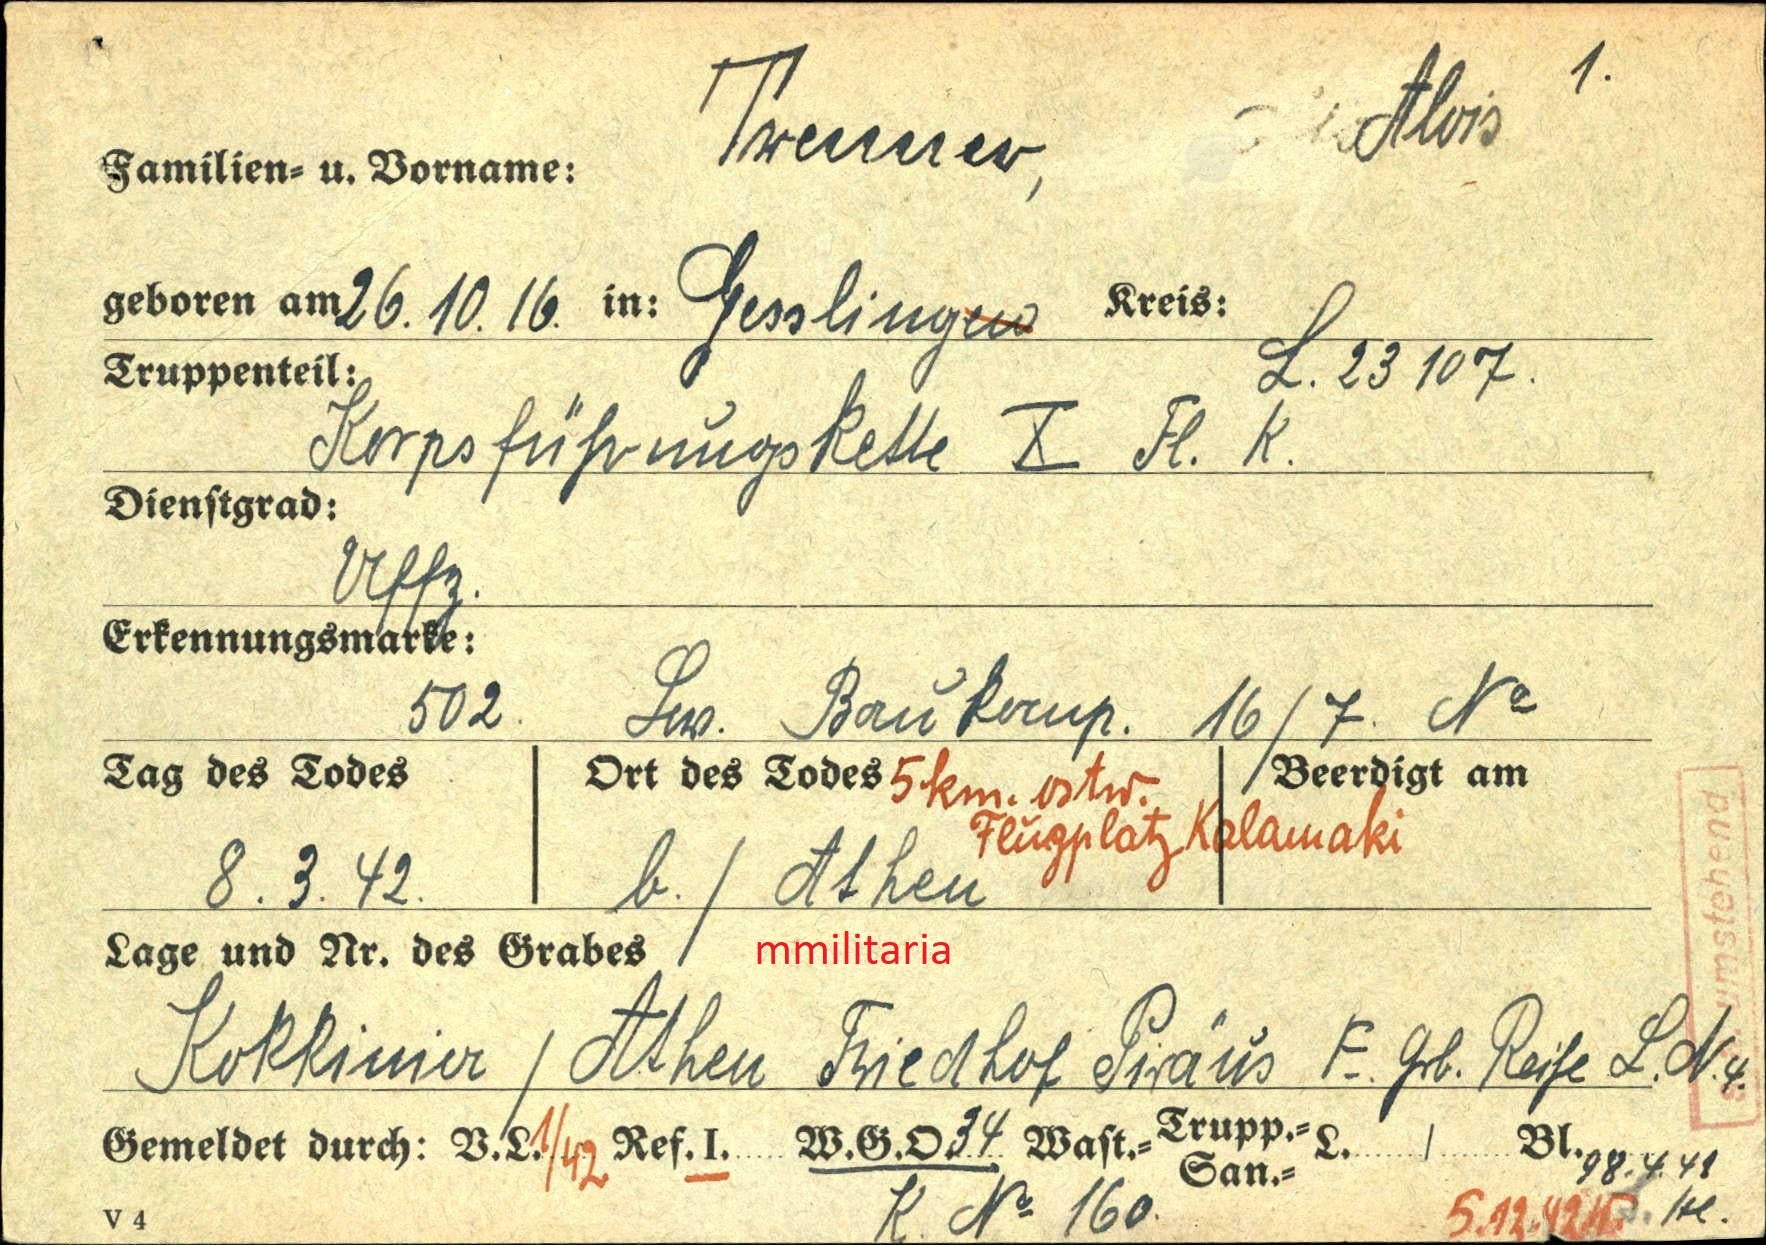 1.
Familien- u. Vorname: Trenner, Alois
geboren am 26.10.16. in: Gesslingen Kreis:
Truppenteil: L. 23 107.
Korpsführungskette X Fl. K.
Dienstgrad:
Uffz.
Erkennungsmarke:
502. Lw. Baukomp. 16/7. No
Tag des Todes Ort des Todes 5 km. ostw. Beerdigt am
Flugplatz Kalamaki
8.3.42. b./Athen
Lage und Nr. des Grabes
mmilitaria
Kokkinier / Athen Friedhof Piräus F. Grb. Reihe L. N. 4.
Gemeldet durch: V.L. 1/42 Ref. I. W.G.O 34 Wast.- Trupp.- San.- L. / Bl.
K. No 160.
V 4
5.12.42
umstehend